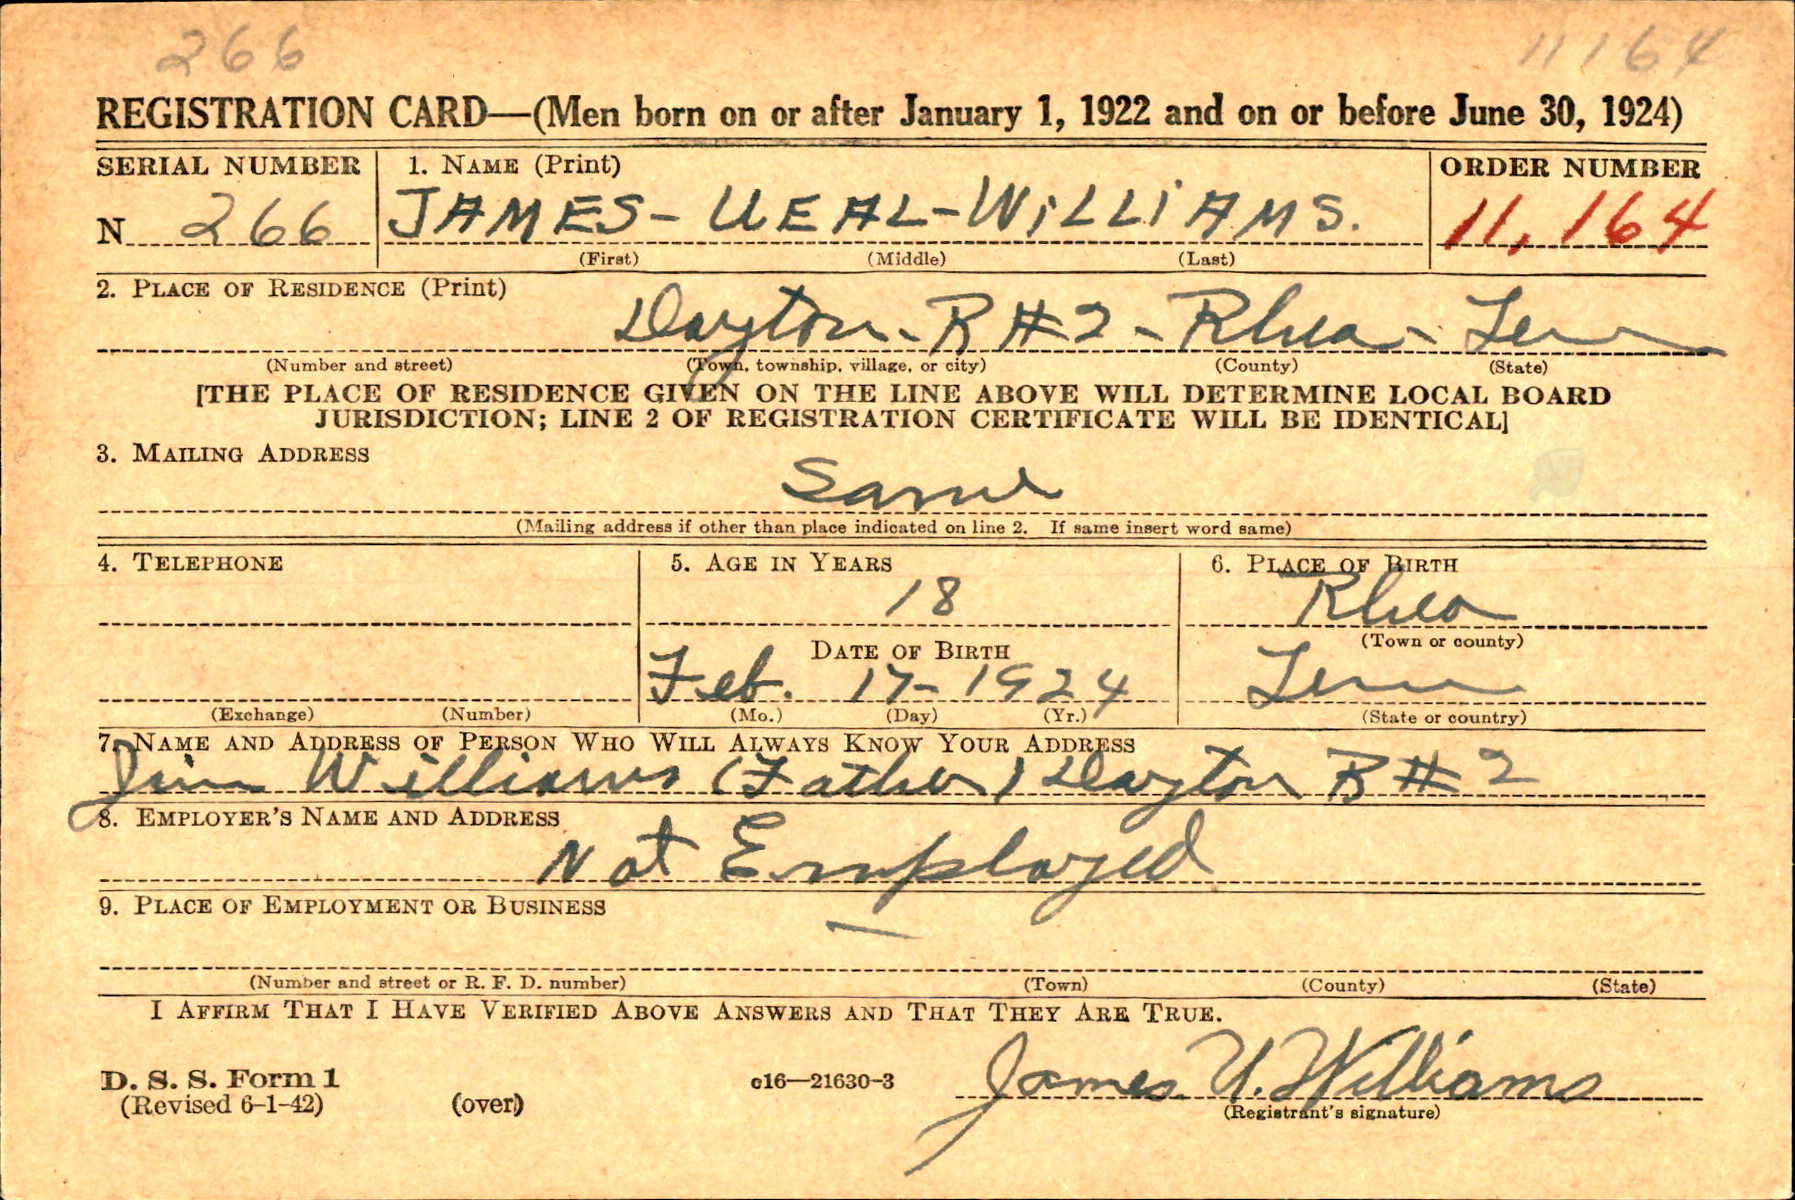 266 11164
REGISTRATION CARD—(Men born on or after January 1, 1922 and on or before June 30, 1924)
SERIAL NUMBER 1. NAME (Print) ORDER NUMBER
N 266 JAMES-UEAL-WILLIAMS. 11,164
(First) (Middle) (Last)
2. PLACE OF RESIDENCE (Print)
Dayton-R#2-Rhea-Tenn
(Number and street) (Town, township, village, or city) (County) (State)
[THE PLACE OF RESIDENCE GIVEN ON THE LINE ABOVE WILL DETERMINE LOCAL BOARD
JURISDICTION; LINE 2 OF REGISTRATION CERTIFICATE WILL BE IDENTICAL]
3. MAILING ADDRESS
Same
(Mailing address if other than place indicated on line 2. If same insert word same)
4. TELEPHONE 5. AGE IN YEARS 6. PLACE OF BIRTH
18 Rhea
(Town or county)
DATE OF BIRTH
Feb. 17-1924 Tenn
(Exchange) (Number) (Mo.) (Day) (Yr.) (State or country)
7. NAME AND ADDRESS OF PERSON WHO WILL ALWAYS KNOW YOUR ADDRESS
Jim Williams (Father) Dayton R#2
8. EMPLOYER'S NAME AND ADDRESS
Not Employed
9. PLACE OF EMPLOYMENT OR BUSINESS
—
(Number and street or R. F. D. number) (Town) (County) (State)
I AFFIRM THAT I HAVE VERIFIED ABOVE ANSWERS AND THAT THEY ARE TRUE.
D. S. S. Form 1 c16—21630-3 James U. Williams
(Revised 6-1-42) (over) (Registrant's signature)